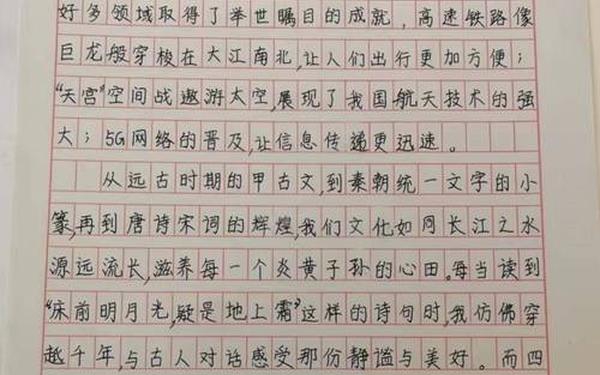 好多领域取得了举世瞩目的成就，高速铁路像
巨龙般穿梭在大江南北,让人们出行更加方便；
“天宫”空间战遨游太空,展现了我国航天技术的强
大；5G网络的晋及,让信息传递更迅速。
从远古时期的甲古文,到秦朝统一文字的小
篆,再到唐诗宋词的辉煌,我们文化如同长江之水
源远流长,滋养每一个炎黄子孙的心田。每当读到
“床前明月光,疑是地上霜”这样的诗句时,我仿佛穿
越千年,与古人对话感受那份静谧与美好。而四